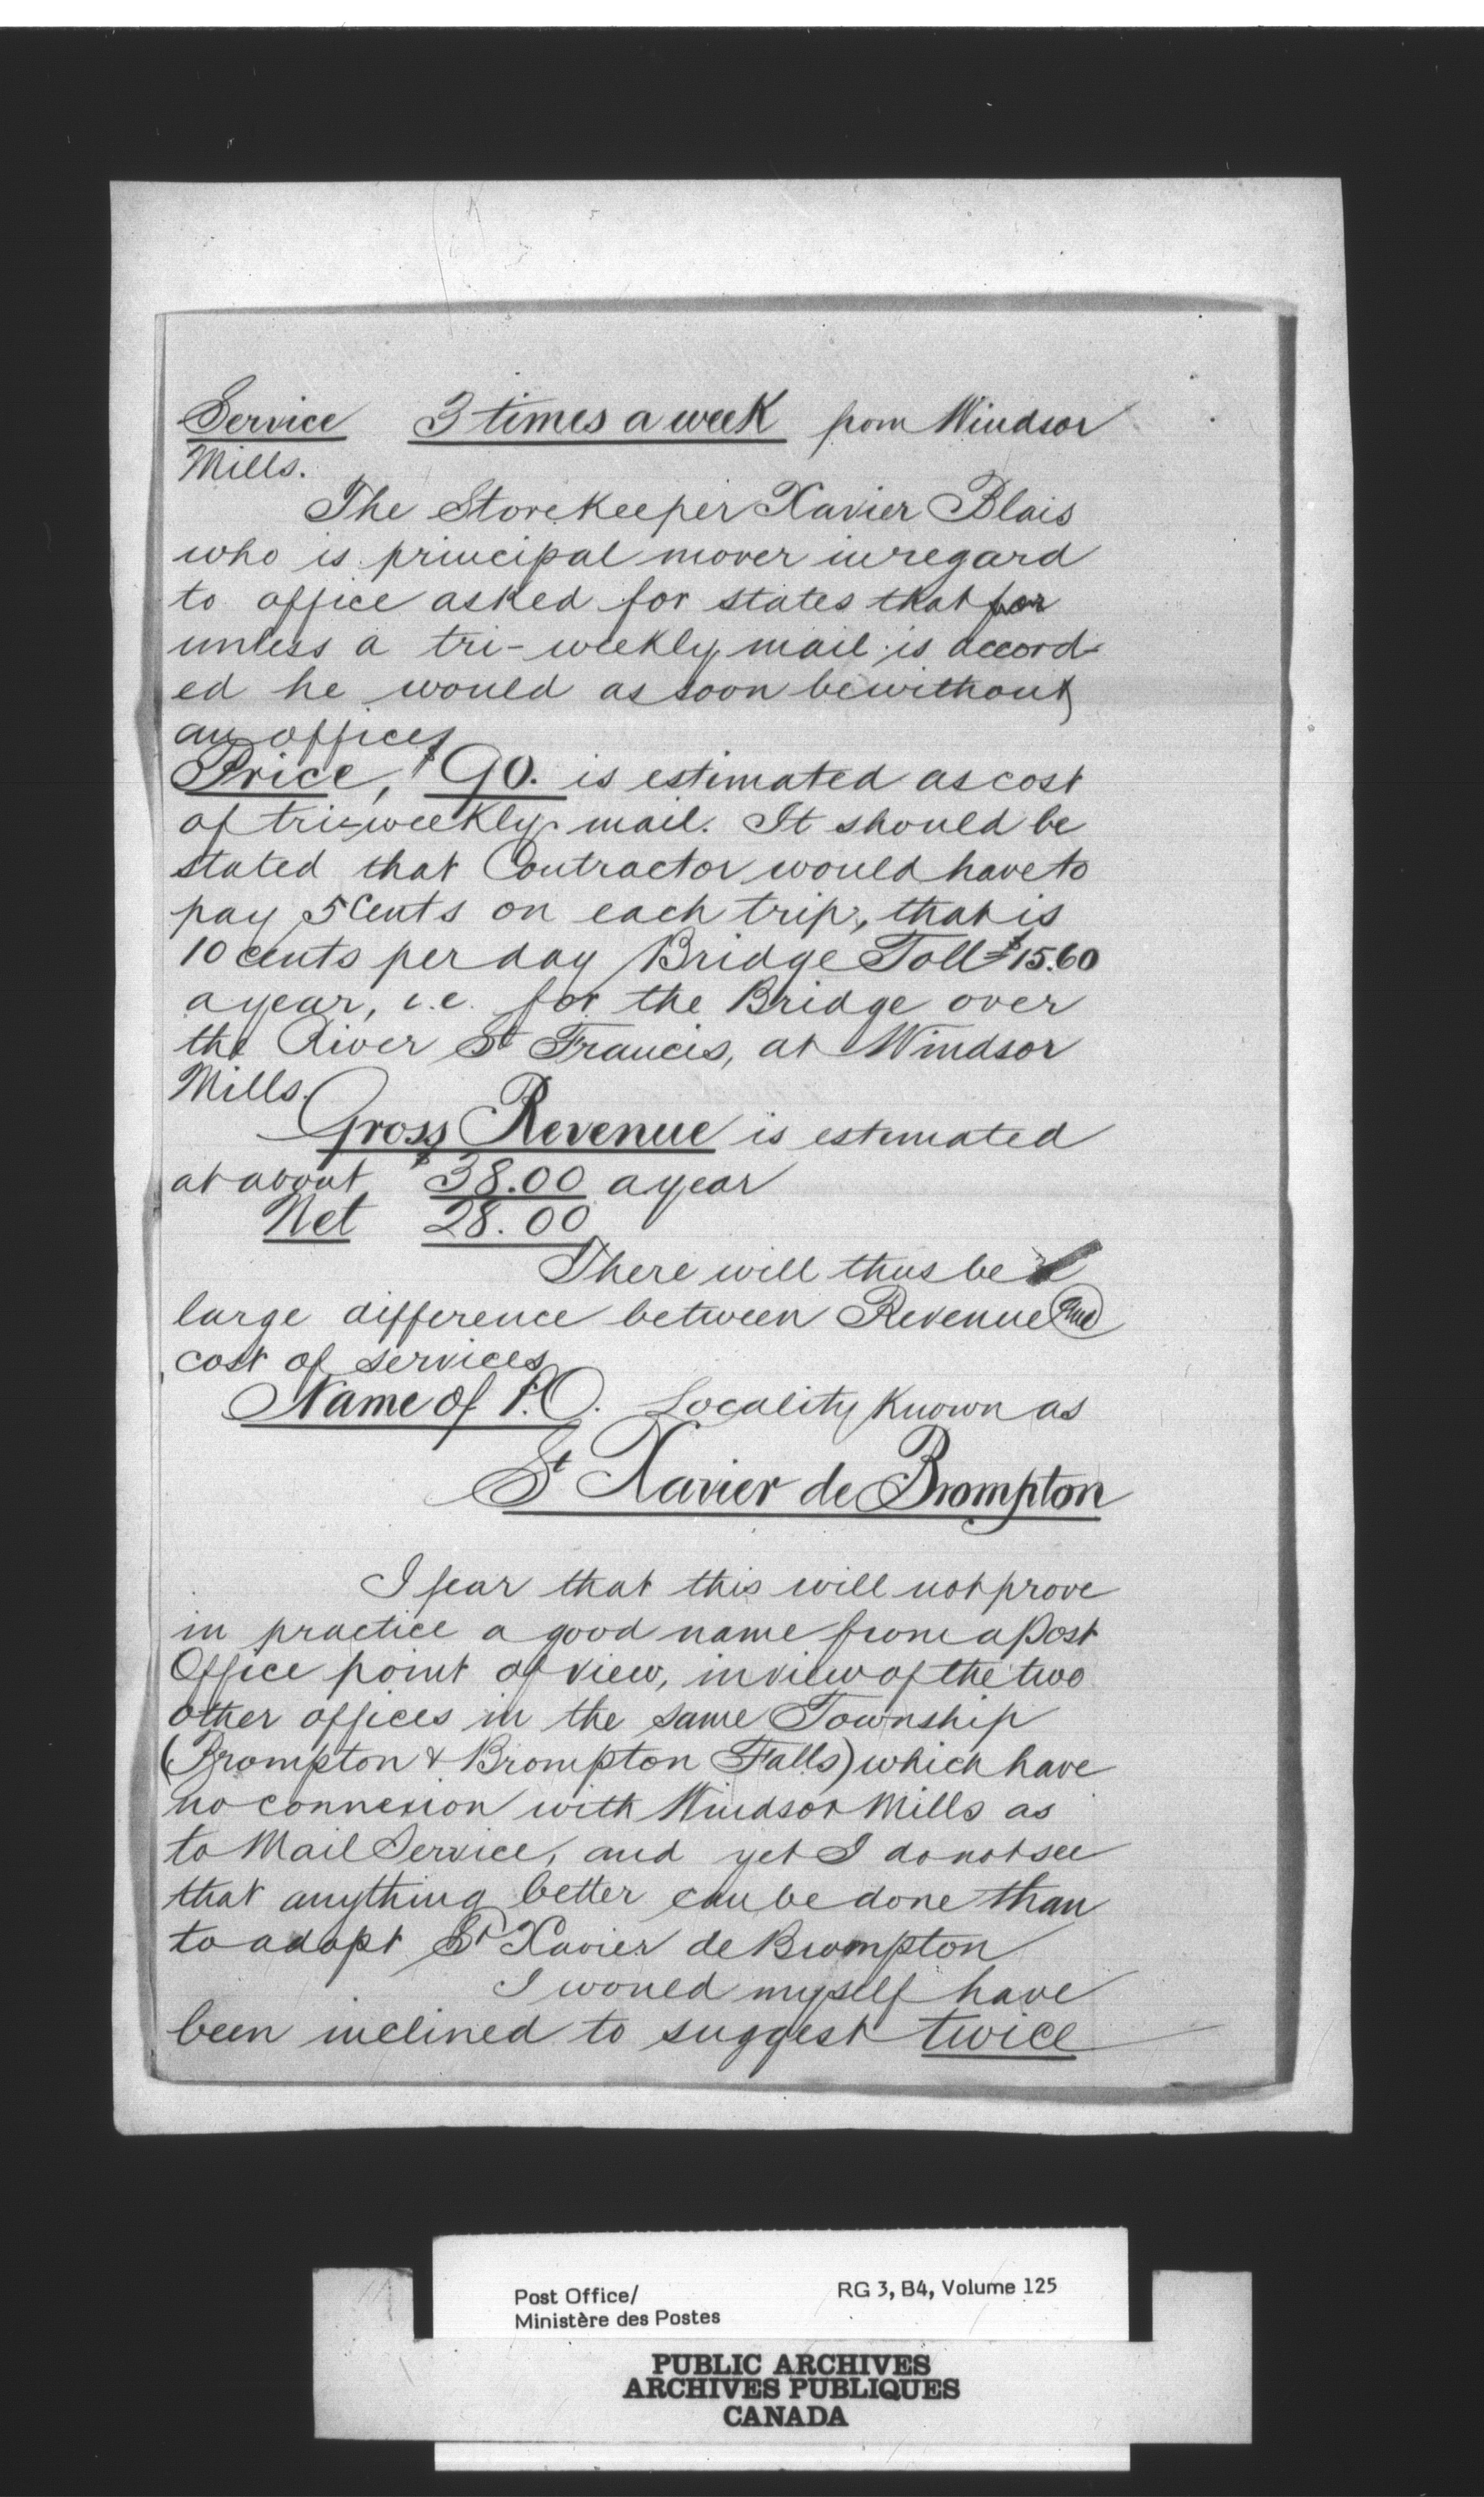 Service 3 times a week from Windsor
Mills.
The Storekeeper Xavier Blais
who is principal mover in regard
to office asked for states that for
unless a tri-weekly mail is accord-
ed he would as soon be without
an office
Price, $90. is estimated as cost
of tri-weekly mail. It should be
stated that Contractor would have to
pay 5 Cents on each trip, that is
10 cents per day Bridge Toll $15.60
a year, i.e. for the Bridge over
the River St Francis, at Windsor
Mills.
Gross Revenue is estimated
at about $38.00 a year
Net 28.00
There will thus be a
large difference between Revenue and
cost of services
Name of P.O. Locality Known as
St Xavier de Brompton
I fear that this will not prove
in practice a good name from a Post
Office point of view, in view of the two
other offices in the same Township
(Brompton & Brompton Falls) which have
no connexion with Windsor Mills as
to Mail Service, and yet I do not see
that anything better can be done than
to adopt St Xavier de Brompton
I would myself have
been inclined to suggest twice
Post Office/
Ministère des Postes
RG 3, B4, Volume 125
PUBLIC ARCHIVES
ARCHIVES PUBLIQUES
CANADA